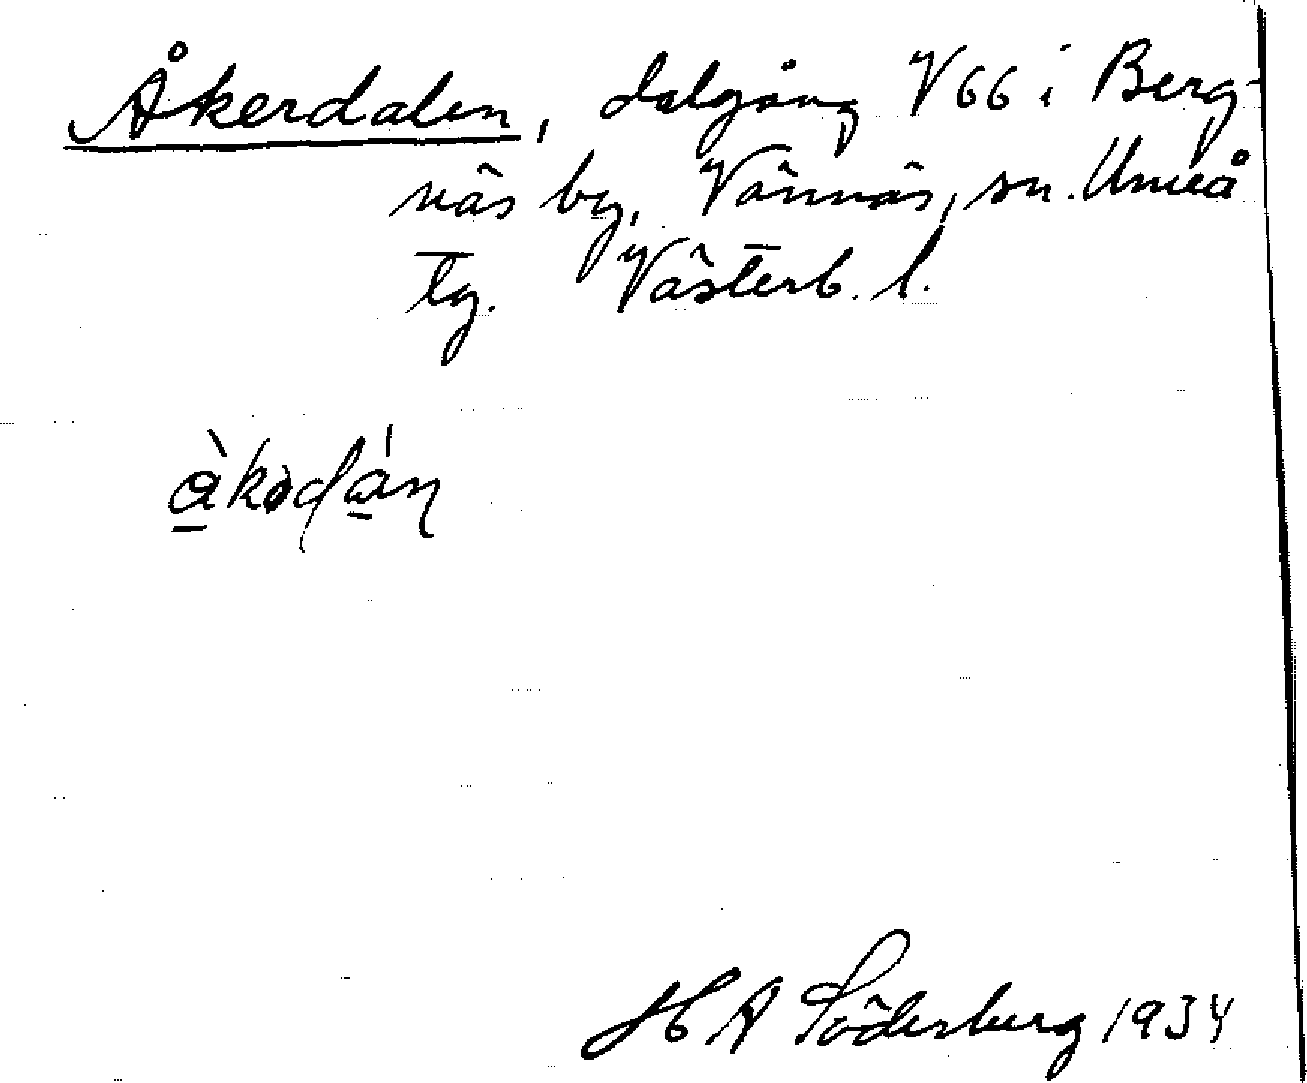 Åkerdalen, dalgång V66 i Berg-
näs by, Vännäs, sn. Umeå
tg. Västerb. l.
àkədán
H A Söderberg 1934